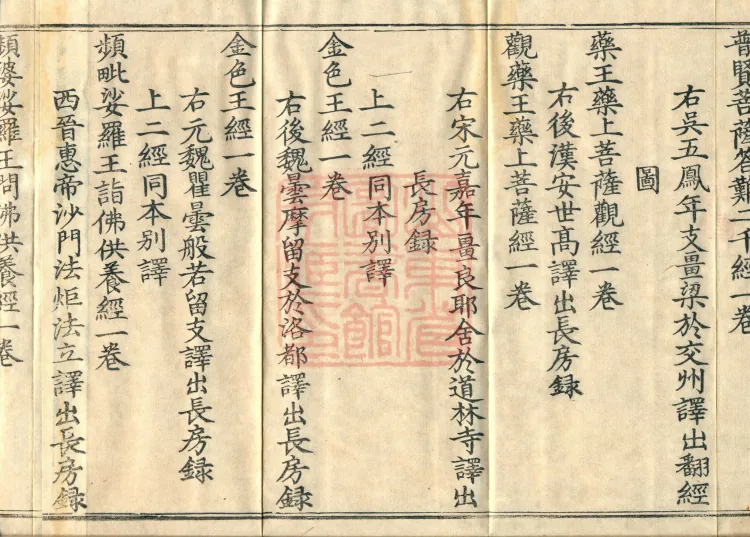 普賢菩薩答難二千經一卷
右吳五鳳年支畺梁於交州譯出翻經
圖
藥王藥上菩薩觀經一卷
右後漢安世髙譯出長房録
觀藥王藥上菩薩經一卷
右宋元嘉年畺良耶舍於道林寺譯出
長房録
上二經同本別譯
金色王經一卷
右後魏曇摩留支於洛都譯出長房録
金色王經一卷
右元魏瞿曇般若留支譯出長房録
上二經同本別譯
頻毗娑羅王詣佛供養經一卷
西晉惠帝沙門法炬法立譯出長房録
頻婆娑羅王問佛供養經一卷